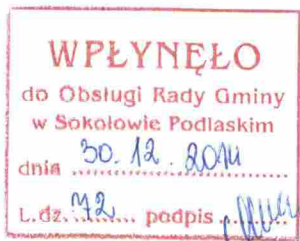 WPŁYNĘŁO
do Obsługi Rady Gminy
w Sokołowie Podlaskim
dnia 30.12.2014
L.dz. 72 podpis